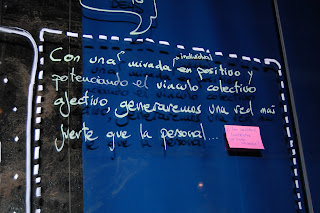 Con una mirada individual en positivo y
potenciando el vínculo colectivo
afectivo, generaremos una red más
fuerte que la personal...